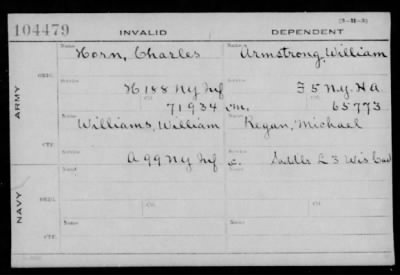 (3-H-3)
104479 INVALID DEPENDENT
Name Name
Horn, Charles Armstrong, William
ARMY
ORIG.
Service Service
H 188 Ny Inf F 5 N.Y. H A
CO. CO.
71934 m. 65773
Name
Williams, William Regan, Michael
CTF.
Service Service
A 99 Ny Inf c. Saddler L 3 Wis Cav
Name Name
NAVY
ORIG.
Service Service
Name Name
CTF.
Service Service